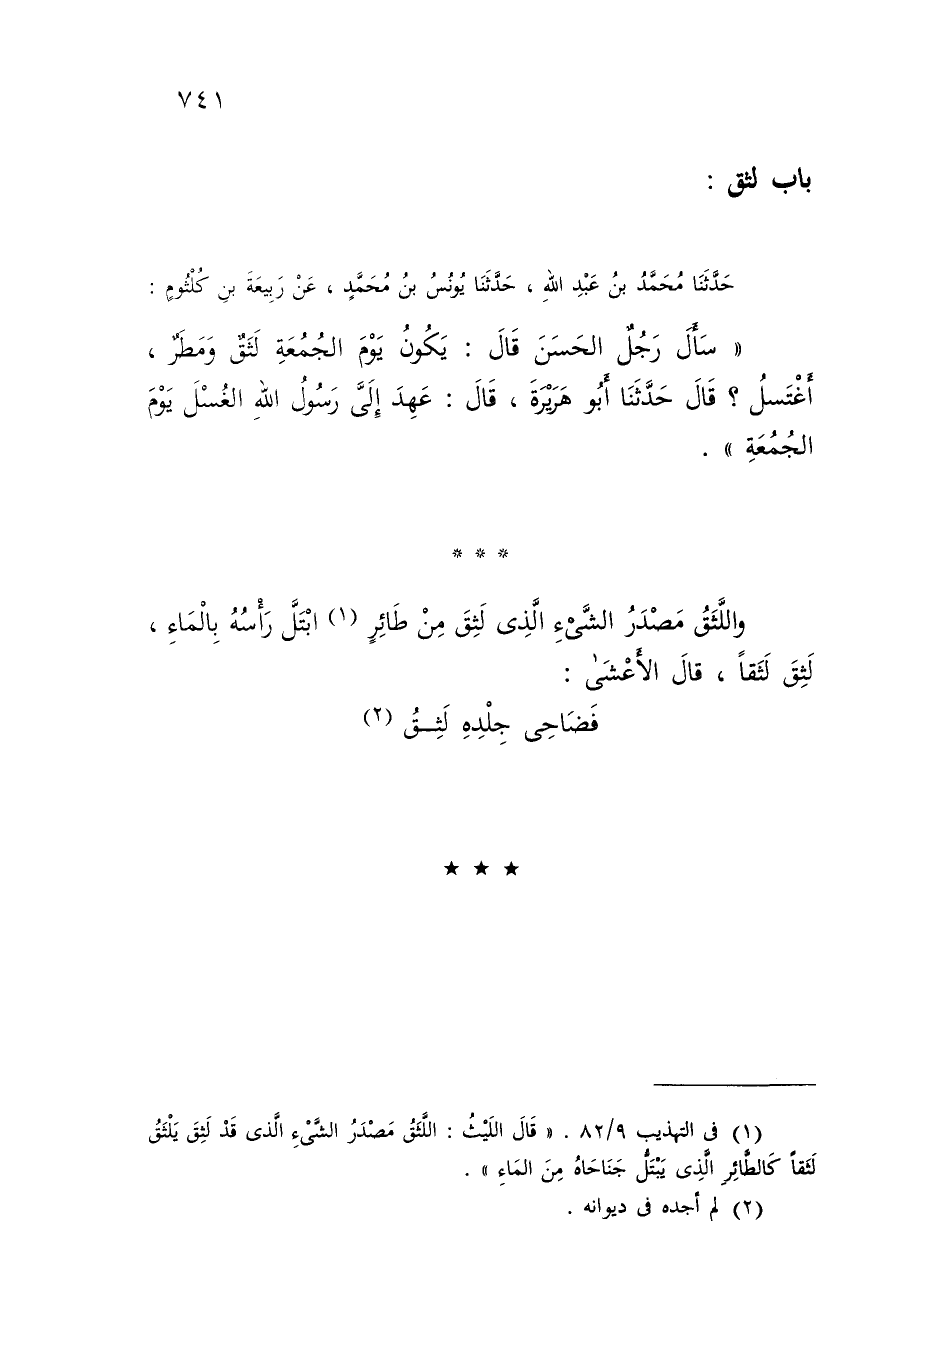 ٧٤١
باب لثق :
حَدَّثَنَا مُحَمَّدُ بنُ عَبْدِ اللهِ ، حَدَّثَنَا يُونُسُ بنُ مُحَمَّدٍ ، عَنْ رَبِيعَةَ بنِ كُلْثُومٍ :
« سَأَلَ رَجُلٌ الحَسَنَ قَالَ : يَكُونُ يَوْمَ الجُمُعَةِ لَثَقٌ وَمَطَرٌ ،
أَغْتَسلُ ؟ قَالَ حَدَّثَنَا أَبُو هَرَيْرَةَ ، قَالَ : عَهِدَ إِلَىَّ رَسُولُ اللهِ الغُسْلَ يَوْمَ
الجُمُعَةِ » .
* * *
واللَّثَقُ مَصْدَرُ الشَّىْءِ الَّذِى لَثِقَ مِنْ طَائِرٍ (١) ابْتَلَّ رَأْسُهُ بِالْمَاءِ ،
لَثِقَ لَثَقاً ، قالَ الأَعْشَىٰ :
فَضَاحِى جِلْدِهِ لَثِـقُ (٢)
★ ★ ★
(١) فى التهذيب ٨٢/٩ . « قَالَ اللَيْثُ : اللَّثَقُ مَصْدَرُ الشَّىْءِ الَّذى قَدْ لَثِقَ يَلْثَقُ
لَثَقاً كَالطَّائِرِ الَّذِى يَبْتَلُّ جَنَاحَاهُ مِنَ المَاءِ » .
(٢) لم أجده فى ديوانه .